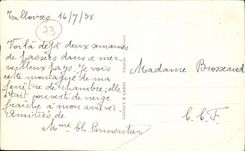 Talloires 14/7/38
73
Voilà déjà deux semaines
de passées dans ce mer-
veilleux pays. Je vois
cette montagne de ma
fenêtre de chambre; elle
était couverte de neige
fraîche à mon arrivée
Amitiés de
Mme Ch. Parmentier
Madame Brosseaud
C. C. F.